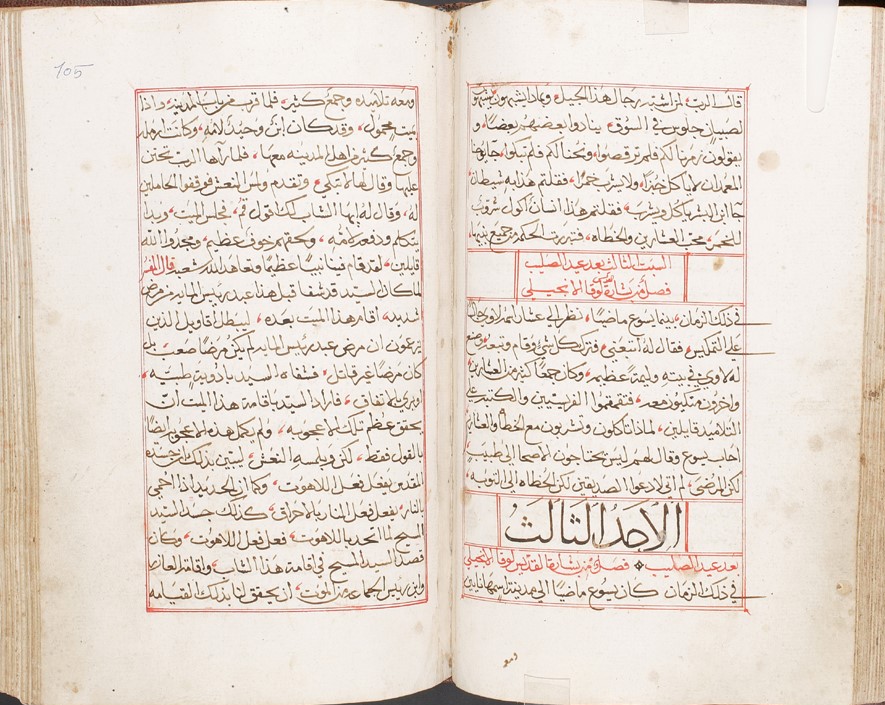 قال الرب لمن اشبه رجال هذا الجيل وبماذا يشبهون يشبهو
لصبيان جلوس في السوق ينادوا بعضهم بعضا و
يقولون زمرنا لكم فلم ترقصوا ونحنا لكم فلم تبكوا جا يوحنا
المعمدان لا ياكل خبزا ولا يشرب خمرا فقلتم هذا به شيطان
جا ابن البشر ياكل ويشرب فقلتم هذا انسان اكول شروب
للخمر محب العشارين والخطاه فتبررت الحكمه من جميع بنيها
السبت الثالث بعد عيد الصليب
فصل من بشارة لوقا الانجيلي
في ذلك الزمان بينما يسوع ماضيا نظر الي عشار اسمه لاوي جالسا
علي المكس فقال له اتبعني فترك كل شي وقام وتبعه وصنع
له لاوي في بيته وليمة عظيمه وكان جمعا كثير من العشارين
واخرون متكيون معه فتقمقموا الفريسيين والكتبه علي
التلاميذ قايلين لماذا تاكلون وتشربون مع الخطاه والعشارين
اجاب يسوع وقال لهم ليس يحتاجون الاصحا الي طبيب
لكن المرضي لم اتي لادعوا الصديقين لكن الخطاه الي التوبه
الاحد الثالث
بعد عيد الصليب فصل من بشارة القديس لوقا الانجيلي
في ذلك الزمان كان يسوع ماضيا الي مدينة اسمها نايين
ومع
105
ومعه تلاميذه وجمع كثير فلما قرب من باب المدينه واذا
بميت محمول وقد كان ابن وحيد لامه وكانت ارمله
وجمع كثير من اهل المدينه معها فلما رآها الرب تحنن
عليها وقال لها لا تبكي وتقدم ولمس النعش فوقفوا الحاملين
له وقال له ايها الشاب لك اقول قم فجلس الميت وبدا
يتكلم ودفعه لامه ولحقهم خوف عظيم ومجدوا الله
قايلين لقد قام فينا نبيا عظيما وتعاهد الله شعبه قال المفسر
لما كان السيد قد شفا قبل هذا عبد رييس المايه من مرض
شديد اقام هذا الميت بعده ليبطل اقاويل الذين
يزعمون ان مرض عبد رييس المايه لم يكن مرضا صعب بل
كان مرضا غير قاتل فشفاه السيد بادوية طبيه
او بري بالاتفاق فاراد السيد باقامة هذا الميت ان
يحقق عظم تلك الاعجوبه ولم يكمل هذه الاعجوبه ايضا
بالقول فقط لكن وبلمسه النعش ليتبين بذلك ان جسده
المقدس يفعل فعل اللاهوت وكما ان الحديد اذا احمي
بالنار يفعل فعل النار بالاحراق كذلك جسد السيد
المسيح لما اتحد باللاهوت فعل فعل اللاهوت وكان
قصد السيد المسيح في اقامة هذا الشاب واقامة العازر
وابن رييس الجماعه من الموت ان يحقق لنا بذلك القيامه